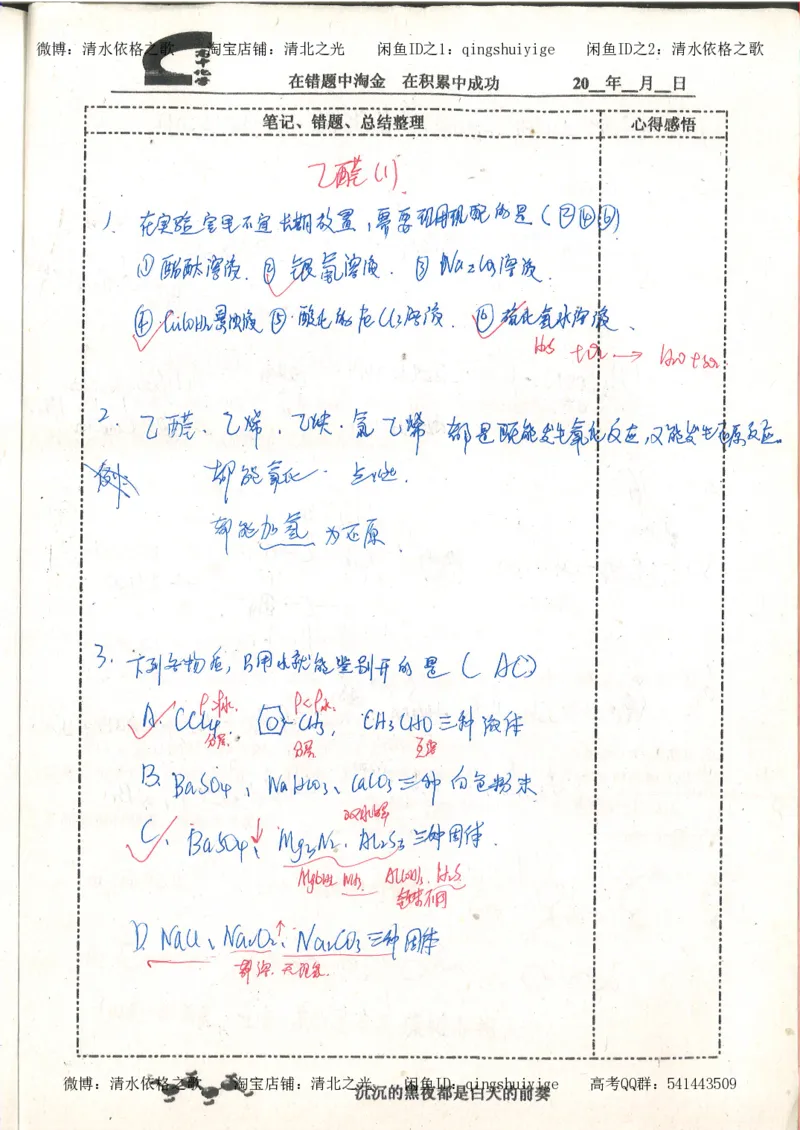 微博：清水依格之歌 淘宝店铺：清北之光 闲鱼ID之1：qingshuiyige 闲鱼ID之2：清水依格之歌
高中化学
在错题中淘金 在积累中成功 20__年__月__日
笔记、错题、总结整理 心得感悟
乙醛(1)
1. 在实验室里不宜长期放置，需要现用现配的是（②④⑥）
①酚酞溶液. ②银氨溶液. ③Na2CO3溶液.
④Cu(OH)2悬浊液 ⑤酸化的FeCl3溶液. ⑥硫化氢水溶液、
H2S +O2 → H2O+S
2. 乙醛、乙烯、乙炔、氯乙烯 都是既能发生氧化反应,又能发生还原反应。
都能氧化. 点燃.
都能加氢为还原.
3. 下列各物质，只用水就能鉴别开的是（AC）
ρ>ρ水. ρ<ρ水.
A. CCl4、 -CH3, CH3CHO三种液体
分层. 分层 互溶
B. BaSO4、NaHCO3、CaCO3三种白色粉末
双水解
C、BaSO4↓、Mg3N2、Al2S3三种固体.
Mg(OH)2 NH3. Al(OH)3 H2S
气味不同
D. NaCl、Na2O2↑、Na2CO3三种固体
都溶. 无现象.
微博：清水依格之歌 淘宝店铺：清北之光 闲鱼ID：qingshuiyige 高考QQ群：541443509
沉沉的黑夜都是白天的前奏